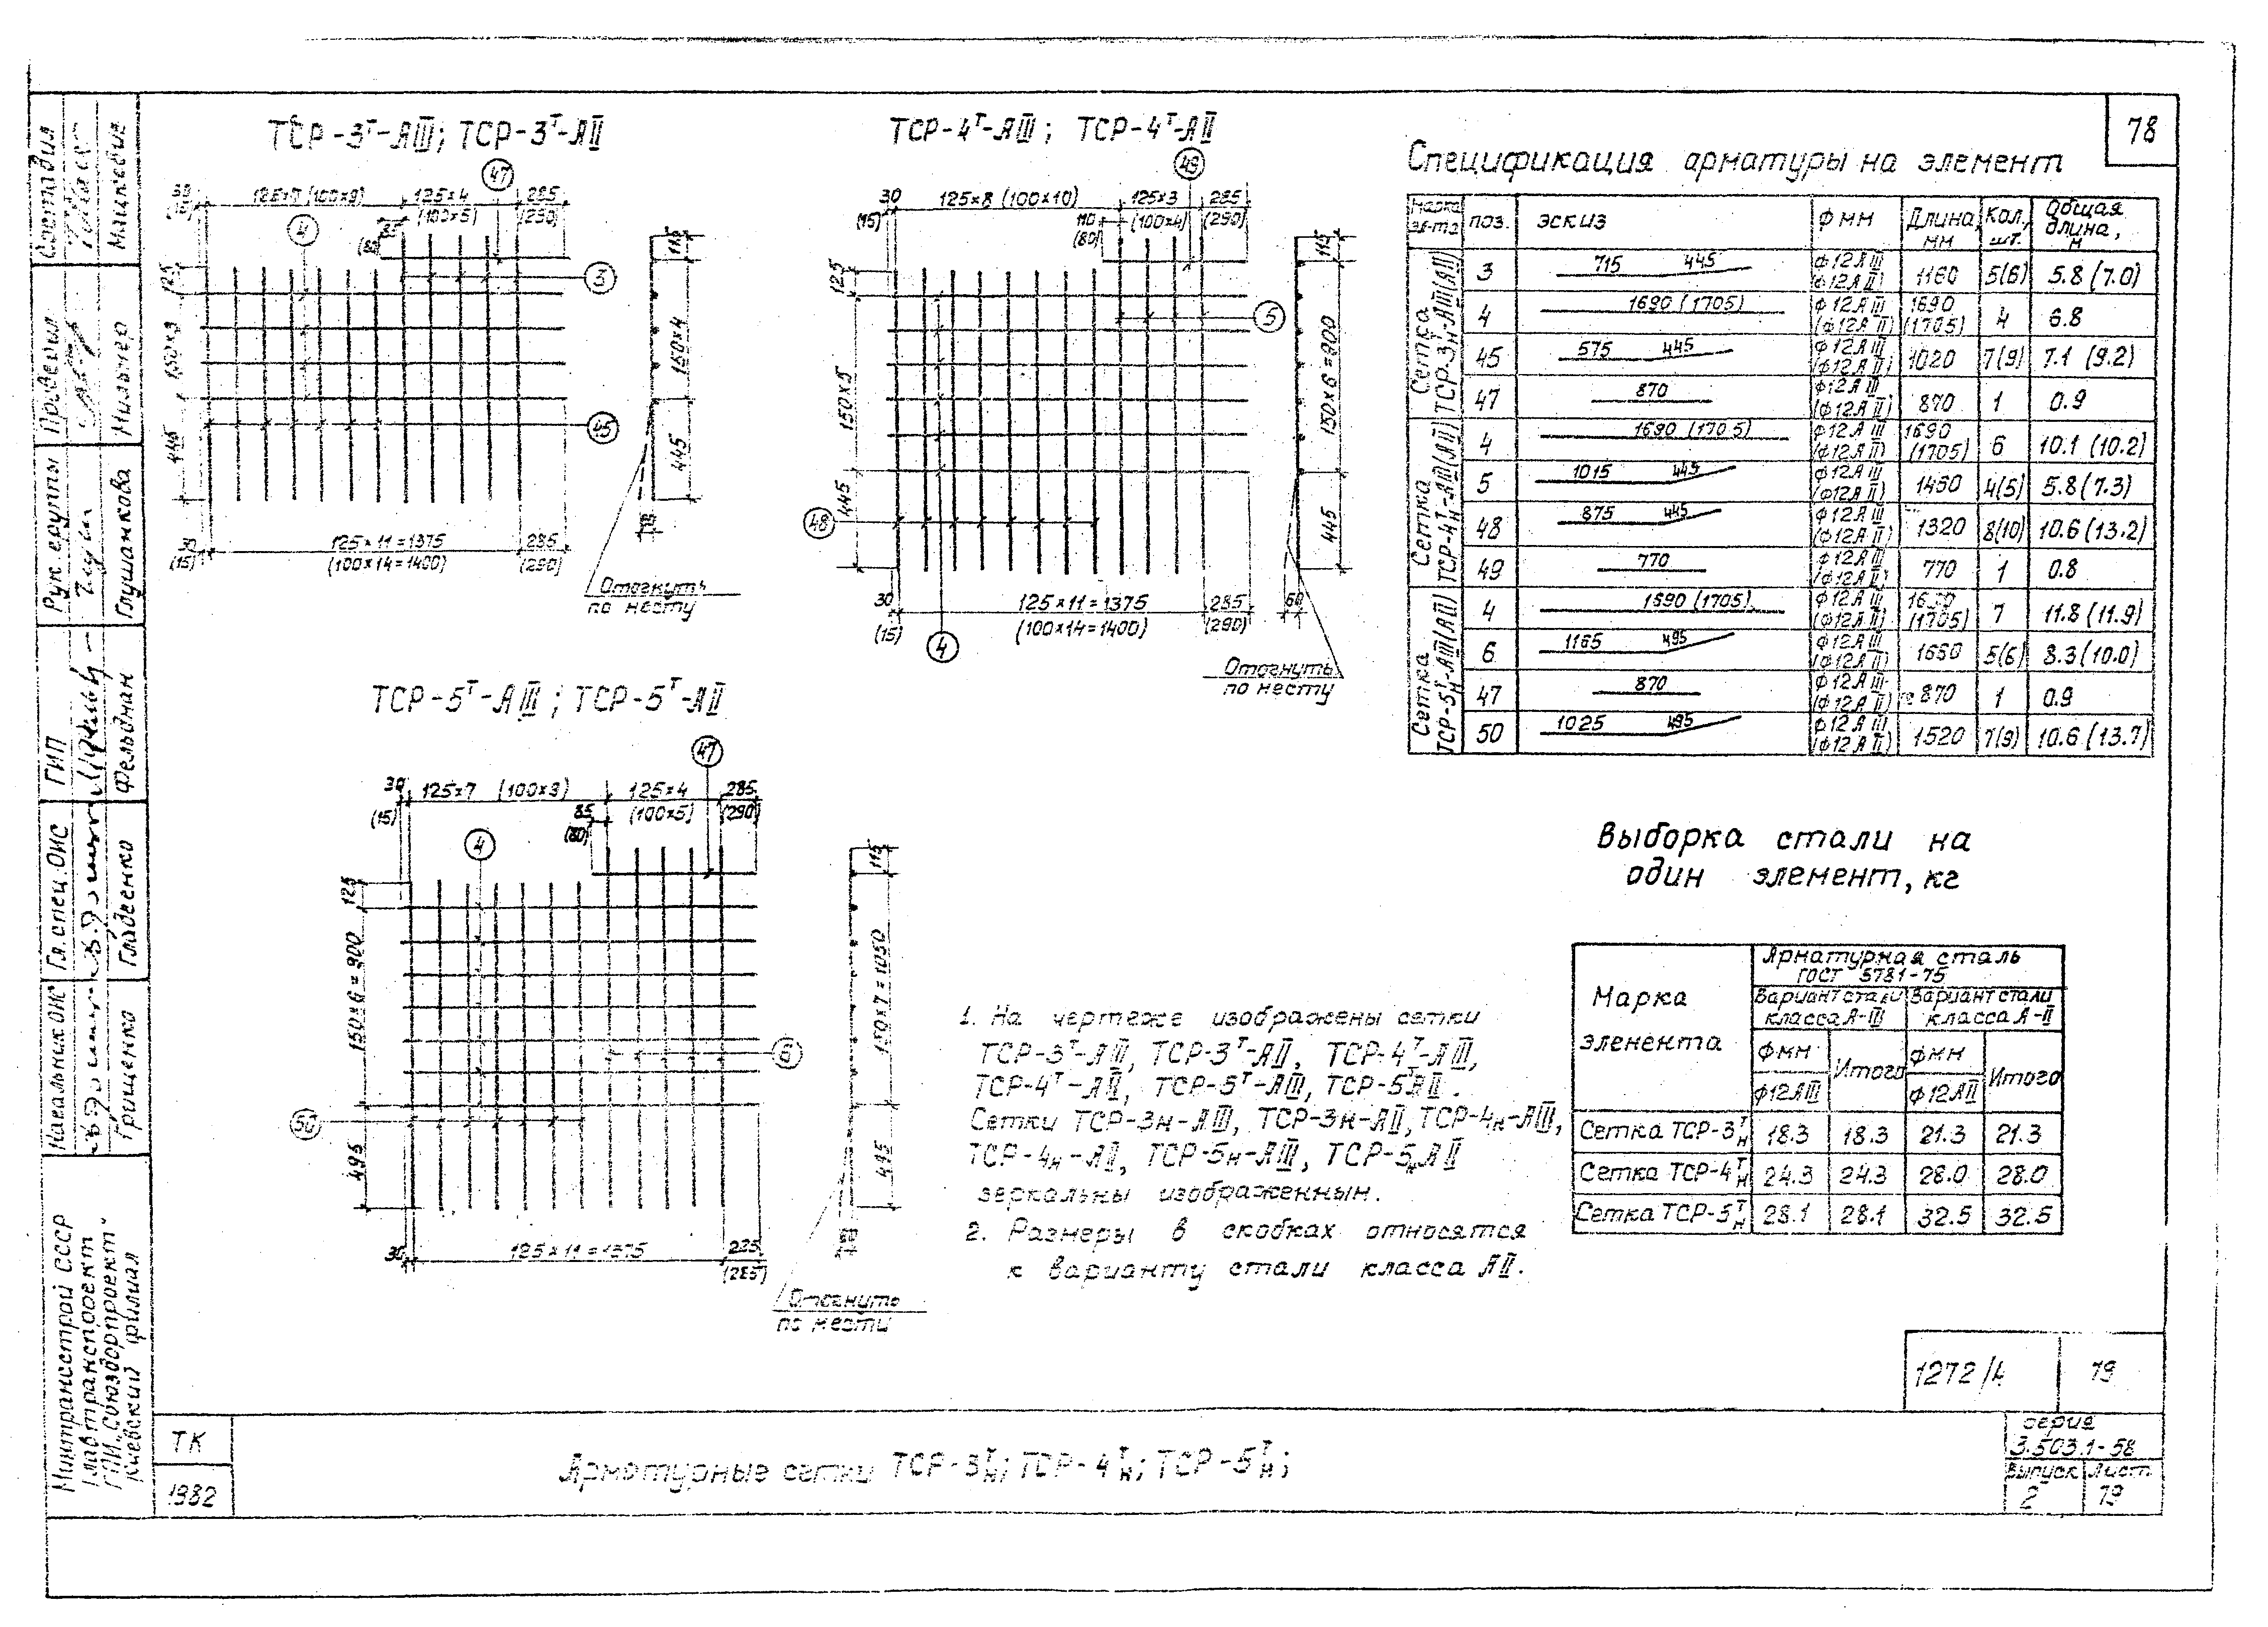 78
ТСР-3Т-АIII; ТСР-3Т-АII
47
30 125×7 (100×9) 125×4 285
(15) (100×5) (290)
85
(80)
4
115
3
125
150×3
150×4
45
445
445
60
30 125×11=1375 285
(15) (100×14=1400) (290)
Отогнуть
по месту
ТСР-4Т-АIII; ТСР-4Т-АII
49
30 125×8 (100×10) 125×3 285
(15) 110 (100×4) (290)
(80)
115
125
5
150×5
150×6=900
48
445
445
30 125×11=1375 285 60
(15) (100×14=1400) (290)
4
Отогнуть
по месту
ТСР-5Т-АIII; ТСР-5Т-АII
47
30 125×7 (100×9) 125×4 285
(15) 85 (100×5) (290)
(80)
4
115
125
150×6=900
150×7=1050
6
50
495
495
30 125×11=1375 285
(285)
60
Отогнуть
по месту
Спецификация арматуры на элемент
Марка эл-та поз. эскиз Ф мм Длина, мм Кол, шт. Общая длина, м
Сетка ТСР-3ТН-АIII(АII)
3 715 445 Ф12АIII (Ф12АII) 1160 5(6) 5.8 (7.0)
4 1690 (1705) Ф12АIII (Ф12АII) 1690 (1705) 4 6.8
45 575 445 Ф12АIII (Ф12АII) 1020 7(9) 7.1 (9.2)
47 870 Ф12АIII (Ф12АII) 870 1 0.9
Сетка ТСР-4ТН-АIII(АII)
4 1690 (1705) Ф12АIII (Ф12АII) 1690 (1705) 6 10.1 (10.2)
5 1015 445 Ф12АIII (Ф12АII) 1460 4(5) 5.8 (7.3)
48 875 445 Ф12АIII (Ф12АII) 1320 8(10) 10.6 (13.2)
49 770 Ф12АIII (Ф12АII) 770 1 0.8
Сетка ТСР-5ТН-АIII(АII)
4 1690 (1705) Ф12АIII (Ф12АII) 1690 (1705) 7 11.8 (11.9)
6 1165 495 Ф12АIII (Ф12АII) 1660 5(6) 8.3 (10.0)
47 870 Ф12АIII (Ф12АII) 870 1 0.9
50 1025 495 Ф12АIII (Ф12АII) 1520 7(9) 10.6 (13.7)
Выборка стали на
один элемент, кг
Марка элемента
Арматурная сталь
ГОСТ 5781-75
Вариант стали класса А-III Вариант стали класса А-II
Ф мм Итого Ф мм Итого
Ф12АIII Ф12АII
Сетка ТСР-3ТН 18.3 18.3 21.3 21.3
Сетка ТСР-4ТН 24.3 24.3 28.0 28.0
Сетка ТСР-5ТН 28.1 28.1 32.5 32.5
1. На чертеже изображены сетки
ТСР-3Т-АIII, ТСР-3Т-АII, ТСР-4Т-АIII,
ТСР-4Т-АII, ТСР-5Т-АIII, ТСР-5ТАII.
Сетки ТСР-3Н-АIII, ТСР-3Н-АII, ТСР-4Н-АIII,
ТСР-4Н-АII, ТСР-5Н-АIII, ТСР-5НАII
зеркальны изображенным.
2. Размеры в скобках относятся
к варианту стали класса АII.
1272/4 79
ТК
1982
Арматурные сетки ТСР-3ТН; ТСР-4ТН; ТСР-5ТН;
серия
3.503.1-58
Выпуск Лист
2 79
Составил Мацкевич
Проверил Мильнер
Рук. группы Глушанкова
ГИП Фельдман
Гл. спец. ОИС Гладченко
Начальник ОИС Грищенко
Минтрансстрой СССР
Главтранспроект
ГПИ „Союздорпроект"
Киевский филиал